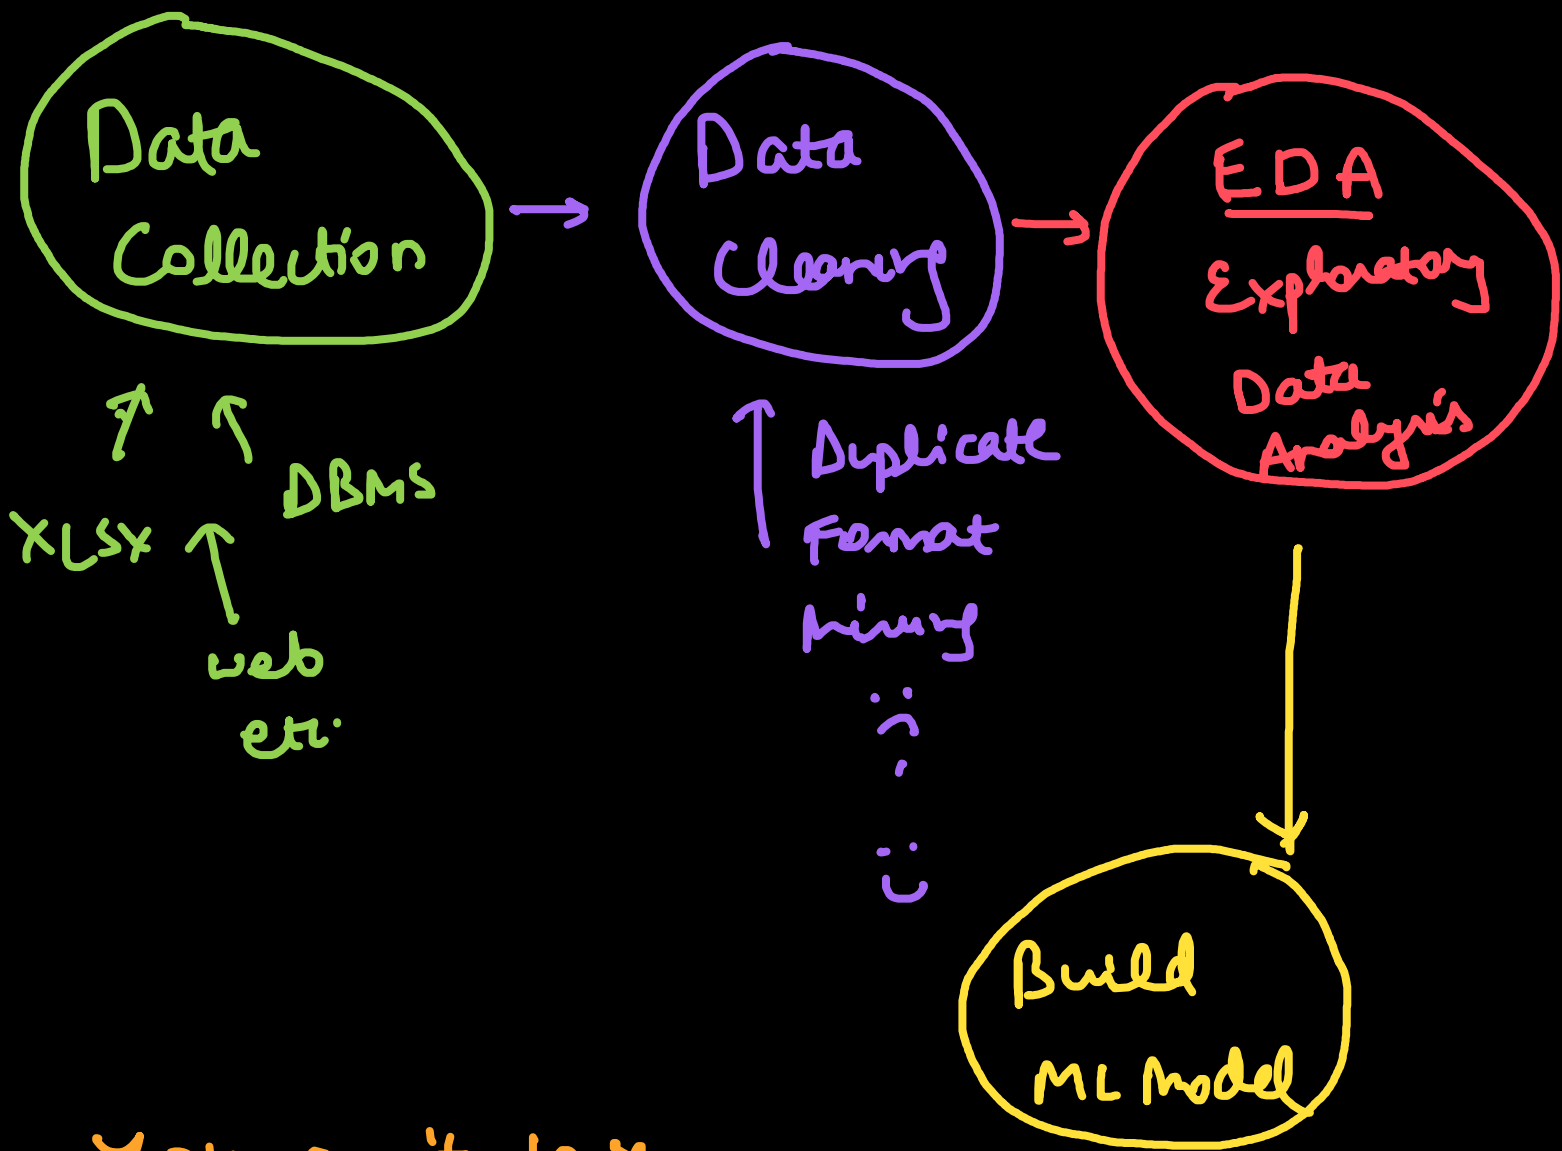 Data
Collection
XLSX
DBMS
web
etc.
Data
Cleaning
Duplicate
Format
Missing
EDA
Exploratory
Data
Analysis
Build
ML Model